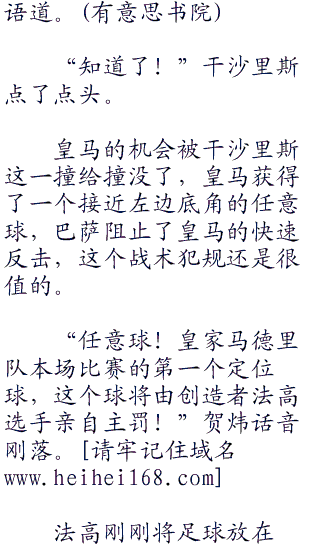 语道。(有意思书院)
“知道了！”干沙里斯
点了点头。
皇马的机会被干沙里斯
这一撞给撞没了，皇马获得
了一个接近左边底角的任意
球，巴萨阻止了皇马的快速
反击，这个战术犯规还是很
值的。
“任意球！皇家马德里
队本场比赛的第一个定位
球，这个球将由创造者法高
选手亲自主罚！”贺炜话音
刚落。[请牢记住域名
www.heihei168.com]
法高刚刚将足球放在